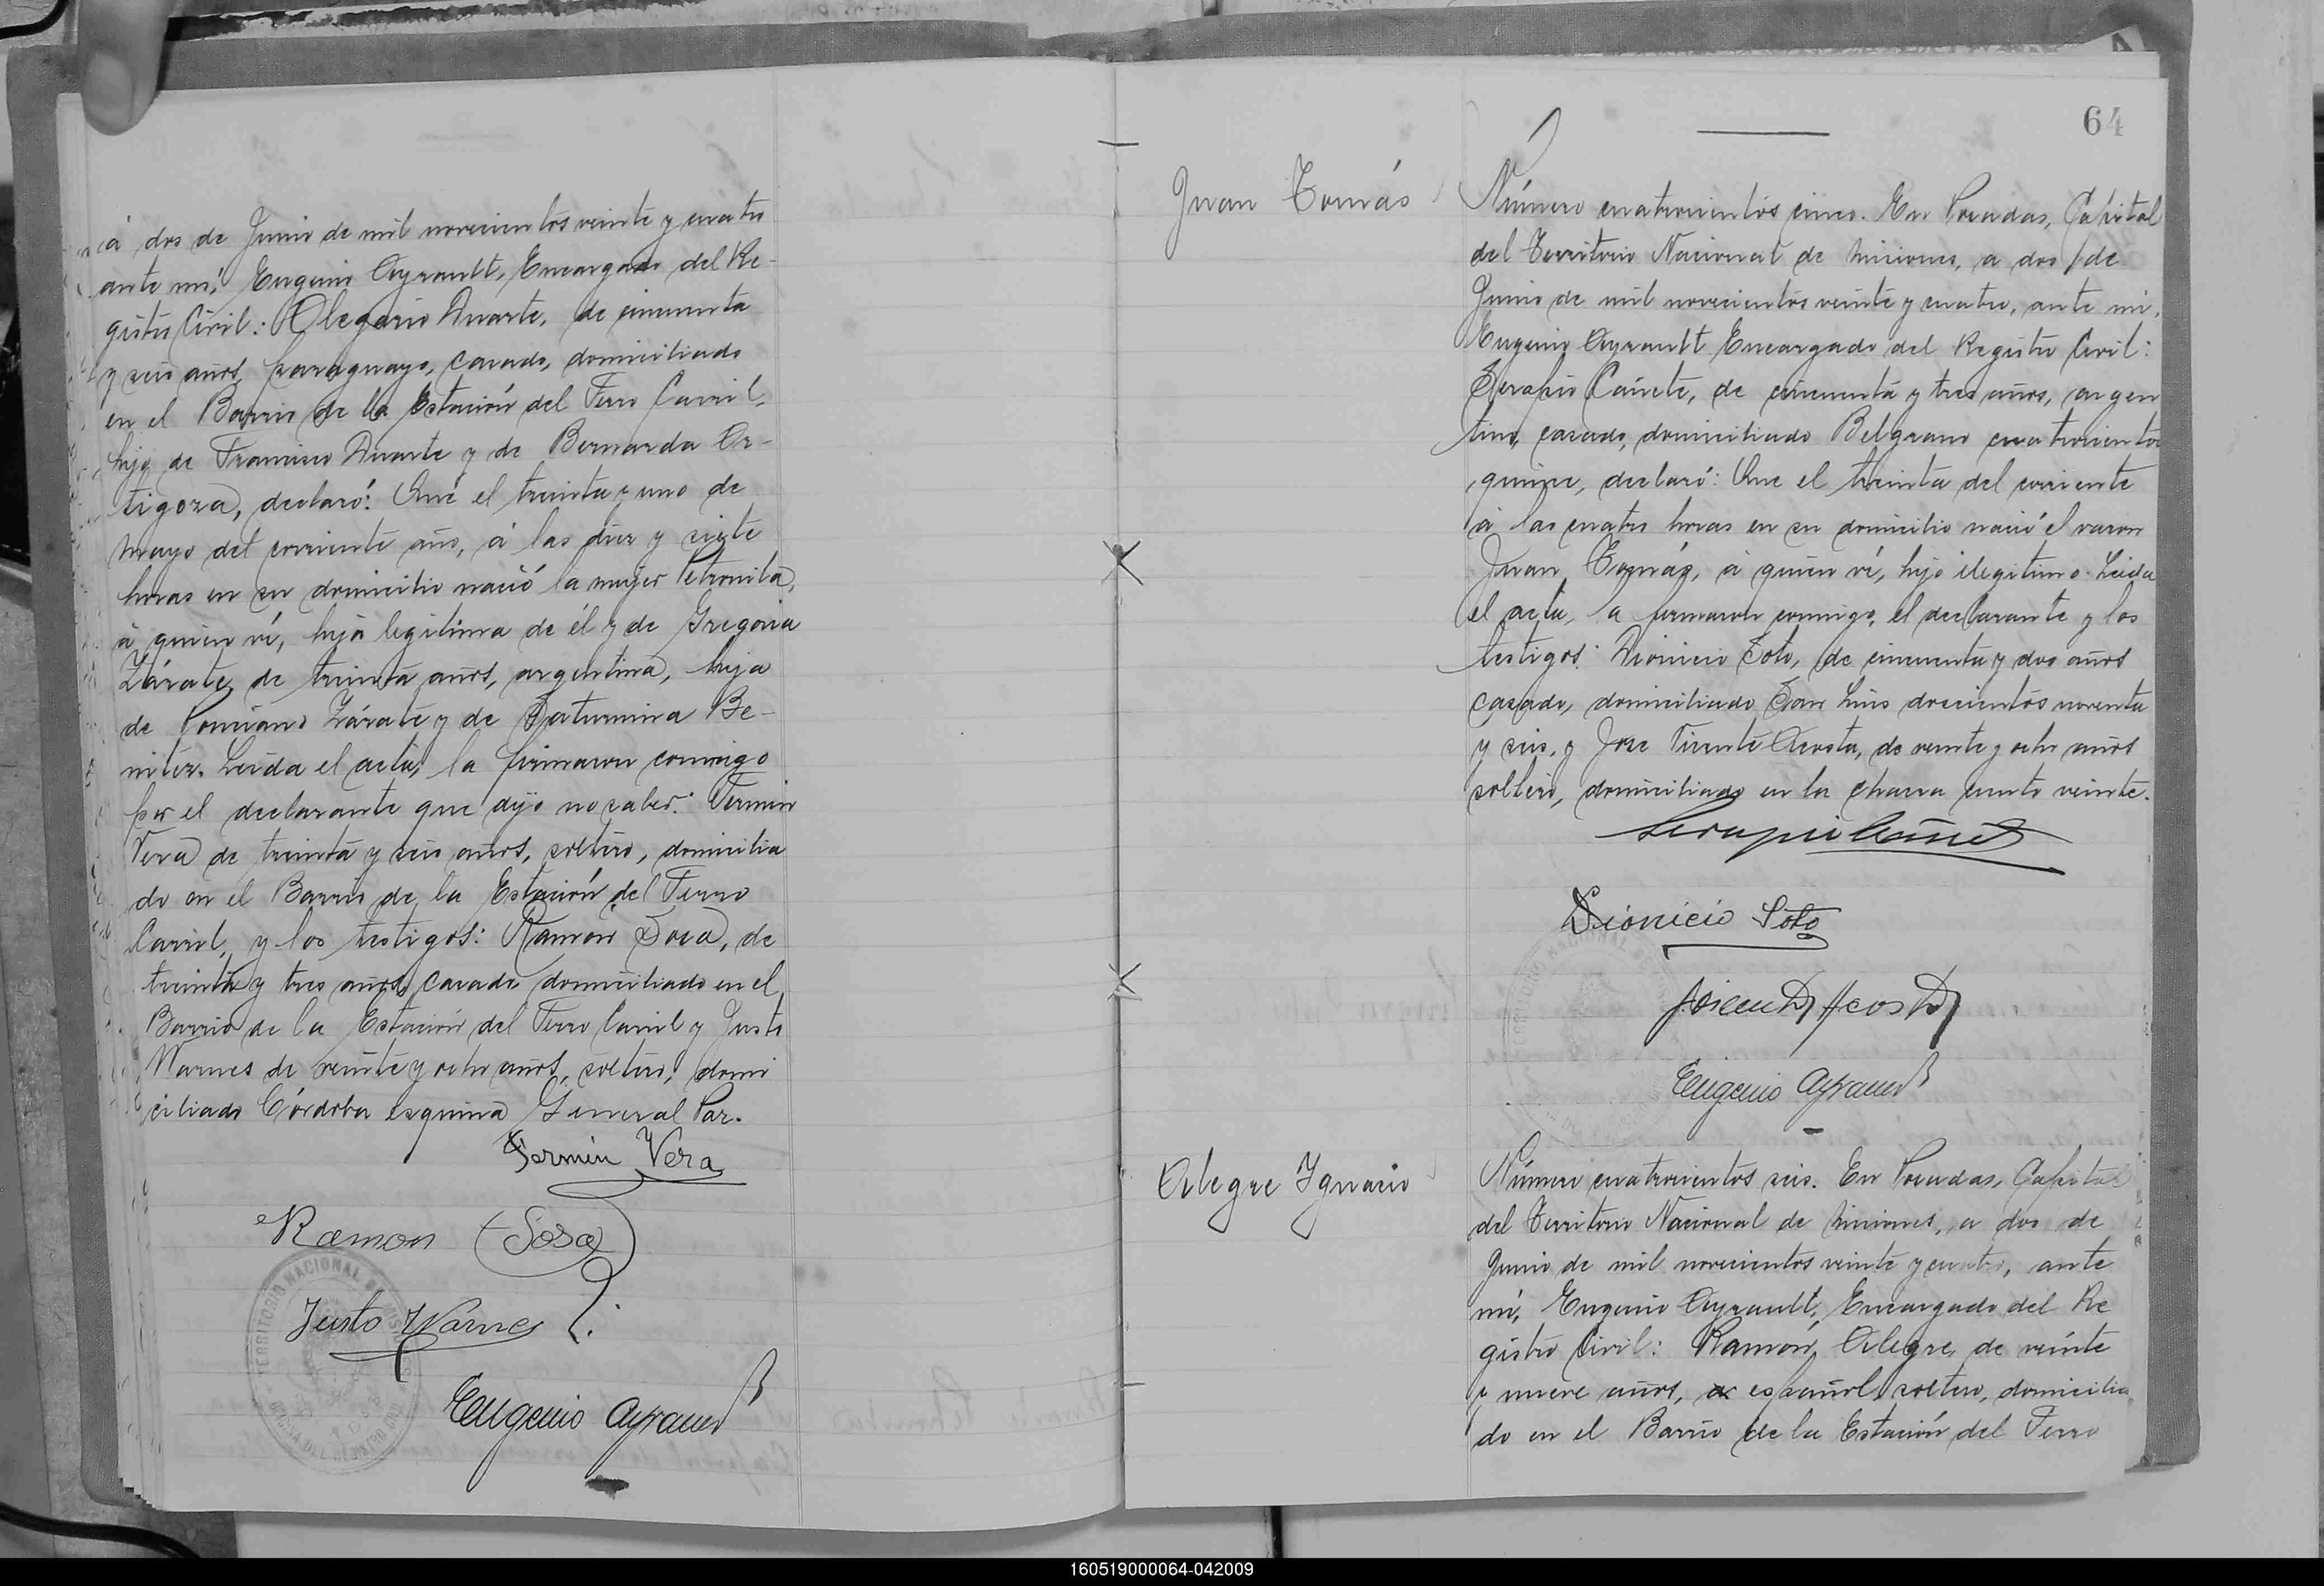 á dos de Junio de mil novecientos veinte y cuatro
ante mí, Eugenio Ayrault, Encargado del Re-
gistro Civil: Olegario Duarte, de cincuenta
y seis años, paraguayo, casado, domiciliado
en el Barrio de la Estación del Ferro Carril,
hijo de Francisco Duarte y de Bernarda Or-
tigoza, declaró: Que el treinta y uno de
Mayo del corriente año, á las diez y siete
horas en su domicilio nació la mujer Petronila,
á quien ví, hija legítima de él y de Gregoria
Zárate, de treinta años, argentina, hija
de Ponciano Zárate y de Saturnina Be-
nitez. Leida el acta, la firmaron conmigo
por el declarante que dijo no saber: Fermin
Vera de treinta y seis años, soltero, domicilia
do en el Barrio de la Estación del Ferro
Carril, y los testigos: Ramón Sosa, de
treinta y tres años, casado domiciliado en el
Barrio de la Estación del Ferro Carril y Justo
Warnes de veinte y ocho años, soltero, domi
ciliado Córdoba esquina General Paz.
Fermin Vera
Ramon Sosa
Justo Warnes
Eugenio Ayrault
TERRITORIO NACIONAL DE MISIONES
OFICINA DEL REGISTRO CIVIL
64
Juan Tomás
Número cuatrocientos cinco. En Posadas, Capital
del Territorio Nacional de Misiones, a dos de
Junio de mil novecientos veinte y cuatro, ante mí,
Eugenio Ayrault Encargado del Registro Civil:
Serapio Cañete, de cincuenta y tres años, argen
tino, casado, domiciliado Belgrano cuatrocientos
quince, declaró: Que el treinta del corriente
á las cuatro horas en su domicilio nació el varon
Juan Tomás, á quien ví, hijo ilegitimo. Leida
el acta, la firmaron conmigo, el declarante y los
testigos: Dionicio Soto, de cincuenta y dos años
casado, domiciliado San Luis doscientos noventa
y seis, y Jose Vicente Acosta, de veinte y ocho años
soltero, domiciliado en la chacra ciento veinte.
Serapio Cañete
Dionicio Soto
J. Vicente Acosta
Eugenio Ayrault
Alegre Ygnacio
Número cuatrocientos seis. En Posadas, Capital
del Territorio Nacional de Misiones, a dos de
Junio de mil novecientos veinte y cuatro, ante
mí, Eugenio Ayrault, Encargado del Re
gistro Civil: Ramón Alegre, de veinte
y nueve años, español, soltero, domicilia
do en el Barrio de la Estación del Ferro
160519000064-042009